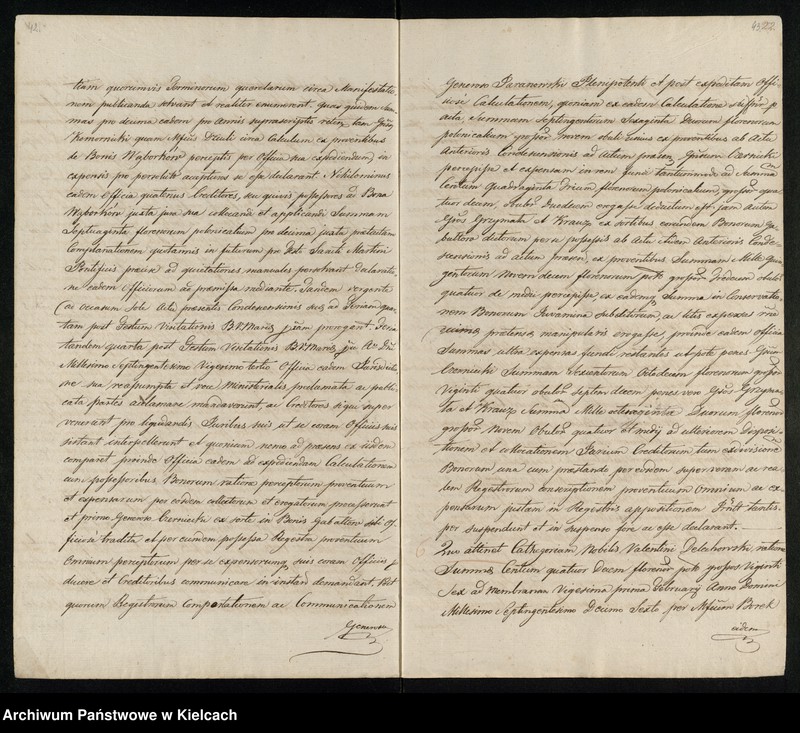 42.
tiam quorumvis Terminorum querelarum circa Manifestatio
nem publicanda solvant et realiter enumerent. Quas quidem Sum
mas pro decima eadem pro Annis suprascriptis
Komornicki quam circa Calculum ex proventibus
de Bonis Wyborkow perceptis per Officia sua expediendum in
expensis pro portulit accepturus se esse declarant. Nihilominus
eadem Officia quatenus Creditores, seu quivis possessores ad Bona
Wyborkow juxta jura sua collocand et applicandi Summam
Septuaginta florenorum polonicalium pro decima juxta
Complanationem quotannis in futurum pro Festo Sancti Martini
Pontificis praevie ad quietationes manuales persolvant declarato
ne eadem Officiorum ac praemissa radiante. Tandem vergente
ac occasum Sole Acta praesentis Condescensionis suae ad Feriam quar
tam post Festum Visitationis B.V. Mariae prorogant. Feria
tandem quarta post Festum Visitationis B.V. Mariae
Millesimo Septingentesimo Vigesimo tertio Officia eadem Jurisdictio
ne sua reassumpta et voce Ministerialis proclamata ac publi
cata partes acclamare mandaverunt, ac Creditores siqui super
venerant pro liquidandis Juribus suis ut se coram Officiis suis
sistant intersellerent et quoniam nemo ad praesens ex iisdem
comparet proinde Officia eadem ad expediendam Calculationem
cum possessoribus Bonorum ratione perceptorum proventuum
et expensarum per eosdem collectorum et erogatorum processerunt
et primo Generoso Czernicki ex sorte in Bonis Gabultow sibi Of
ficiose tradita et per eundem possessa Regestra proventuum
Omnium perceptorum per se expensorumq suis coram Officiis
ducere et Creditoribus communicare in instanti demandant. Post
quorum Regestrorum Comportationem ac Communicationem
Generoso
43.22.
Generoso Pacanowski Plenipotenti et post expeditam Offi
ciose Calculationem, quoniam ex eadem Calculatione
Summam Septingentorum Sexaginta Duorum florenorum
polonicalium grossor Novem oboli unius ex proventibus ab Acta
Anterioris Condescensionis ad Actum praesen Gsum Czernicki
percepisse et expensam in rem fundi tantummodo ad Summam
Centum Quadraginta Trium florenorum polonicalium, grossor qua
tuor decem, obulor Duodecim erogasse deductum est. Jam autem
Gsos Grzymala et Krauz ex sortibus eorundem Bonorum Ga
bultow dictorum per se possessis ab Acta Etiam Anterioris Conde
scensionis ad actum praesen ex proventibus Summam Mille Quin
gentorum Novem decem florenorum polo grossor Tredecem obulor
quatuor de medio percepisse ex eademq Summa in Conservatio
nem Bonorum Juvamina subditorum ac lites expensas
pratense manipularis erogasse, proinde eadem Officia
Summas ultra expensas fundi restantes utpote penes Gsum
Czernicki Summam Sexcentorum Octodecem florenorum grossor
Viginti quatuor obulor septem decem penes vero Gsos Grzyma
la et Krauz Summa Mille octuagenta Duorum florenor
grossor Novem Obulor quatuor et medij ad ulteriorem Disposi
tionem et allocationem Jurium Creditorum tum ex divisione
Bonorum una cum praestando per eosdem super veram ac rea
lem Regestrorum conscriptionem proventuum Omnium ac ex
pensorum justam in Regestris appositionem
per suspendunt et in suspenso fore ac esse declarant.
Quo attinet Cathegoream Nobilis Valentini Zelechowski, ratione
Summae Centum quatuor Decem florenor polo grossos Viginti
Sex ad Membranam Vigesima prima February Anno Domini
Millesimo Septingentesimo Decimo Sexto, per Borek
eidem
Archiwum Państwowe w Kielcach